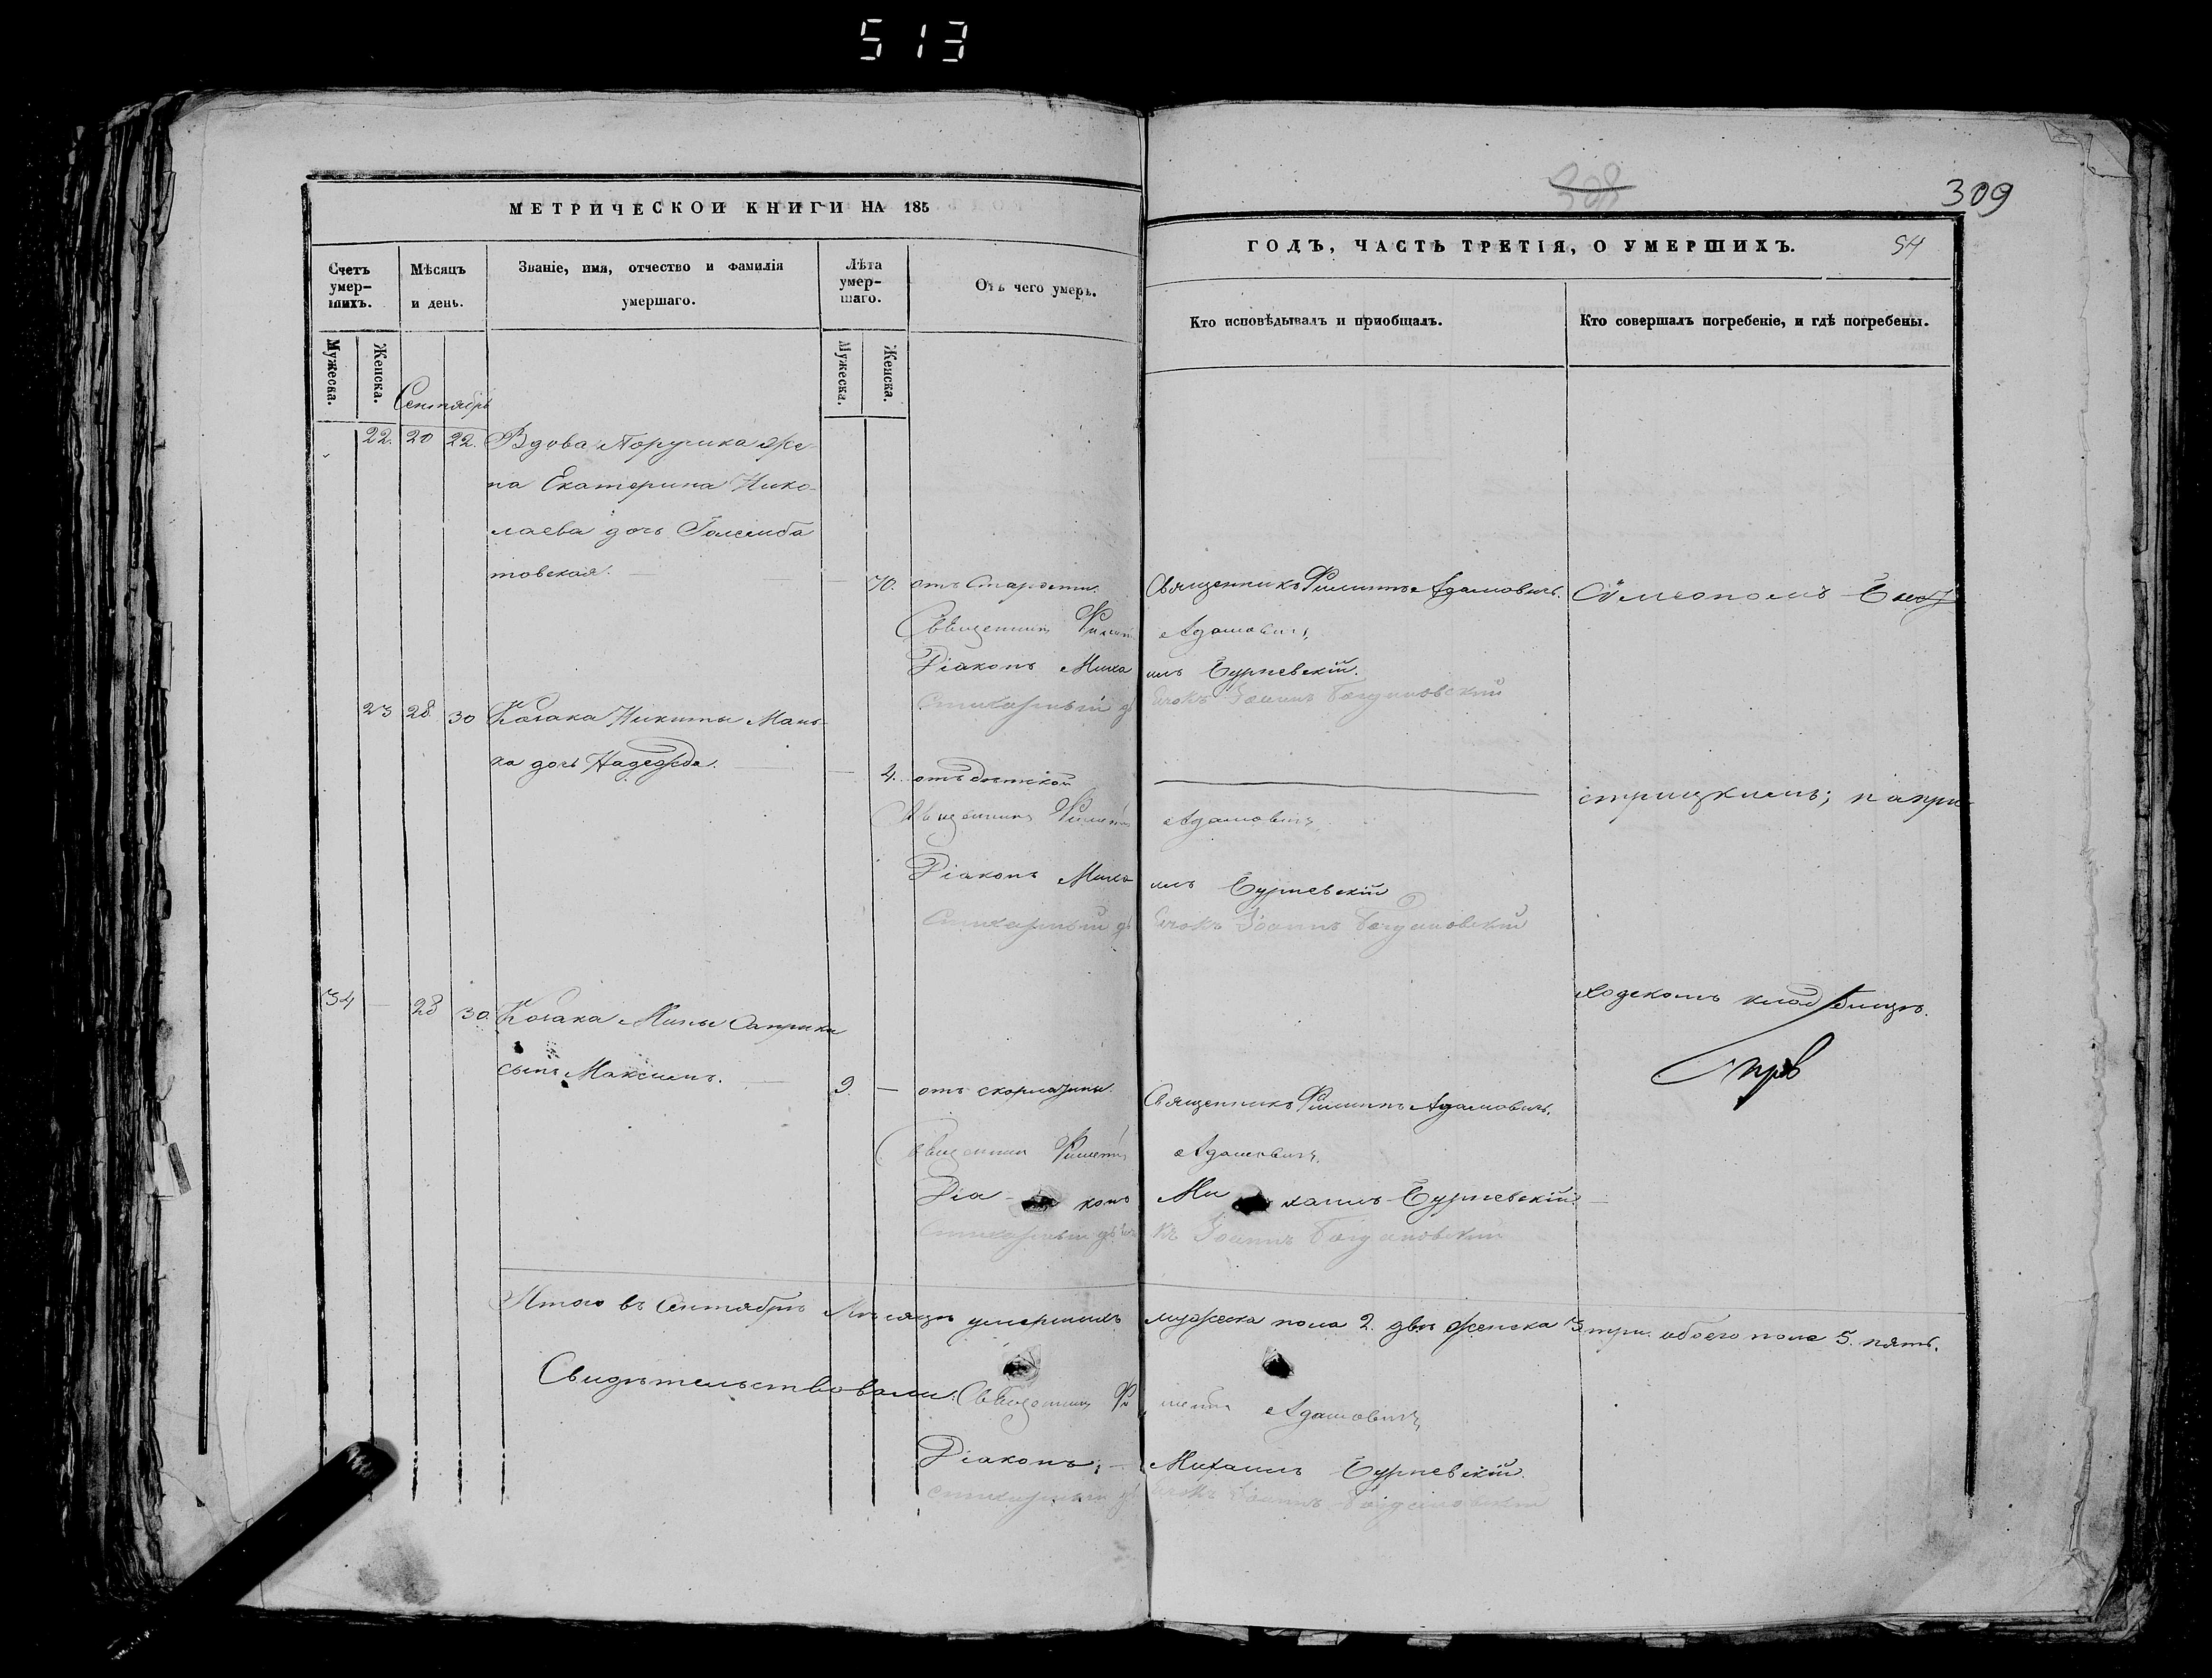 513
308
309
МЕТРИЧЕСКОЙ КНИГИ НА 185
ГОДЪ, ЧАСТЬ ТРЕТІЯ, О УМЕРШИХЪ.
54
Счетъ умер-
шихъ.
Мѣсяцъ
и день.
Званіе, имя, отчество и фамилія
умершаго.
Лѣта
умер-
шаго.
Отъ чего умеръ.
Кто исповѣдывалъ и пріобщалъ.
Кто совершалъ погребеніе, и гдѣ погребены.
Мужеска.
Женска.
Мужеска.
Женска.
Сентябрь
22. 20 22. Вдова Поручика же-
на Екатерина Нико-
лаева дочь
товская. 70. отъ старости. Священникъ Филиппъ Адамовичъ.
Священникъ Филиппъ Адамовичъ
Діаконъ Михаилъ Бурневскій.
Стихарный дьячокъ Іоаннъ Богдановскій
23 28 30 Козака Никиты Мань-
ка дочь Надежда. 4. отъ дѣтской
стрицкимъ; на при-
Священникъ Филиппъ Адамовичъ
Діаконъ Михаилъ Бурневскій
Стихарный дьячокъ Іоаннъ Богдановскій
ходскомъ кладбищѣ.
34 — 28 30. Козака Мины
сынъ Максимъ. 9. — отъ скорлатины. Священникъ Филиппъ Адамовичъ.
Священникъ Филиппъ Адамовичъ
Діаконъ Михаилъ Бурневскій
Стихарный дьячокъ Іоаннъ Богдановскій
Итого въ Сентябрѣ Мѣсяцѣ умершихъ мужеска пола 2. два женска 3 три. обоего пола 5. пять.
Свидѣтельствовали: Священникъ Филиппъ Адамовичъ
Діаконъ, Михаилъ Бурневскій.
стихарный дьячокъ Іоаннъ Богдановскій